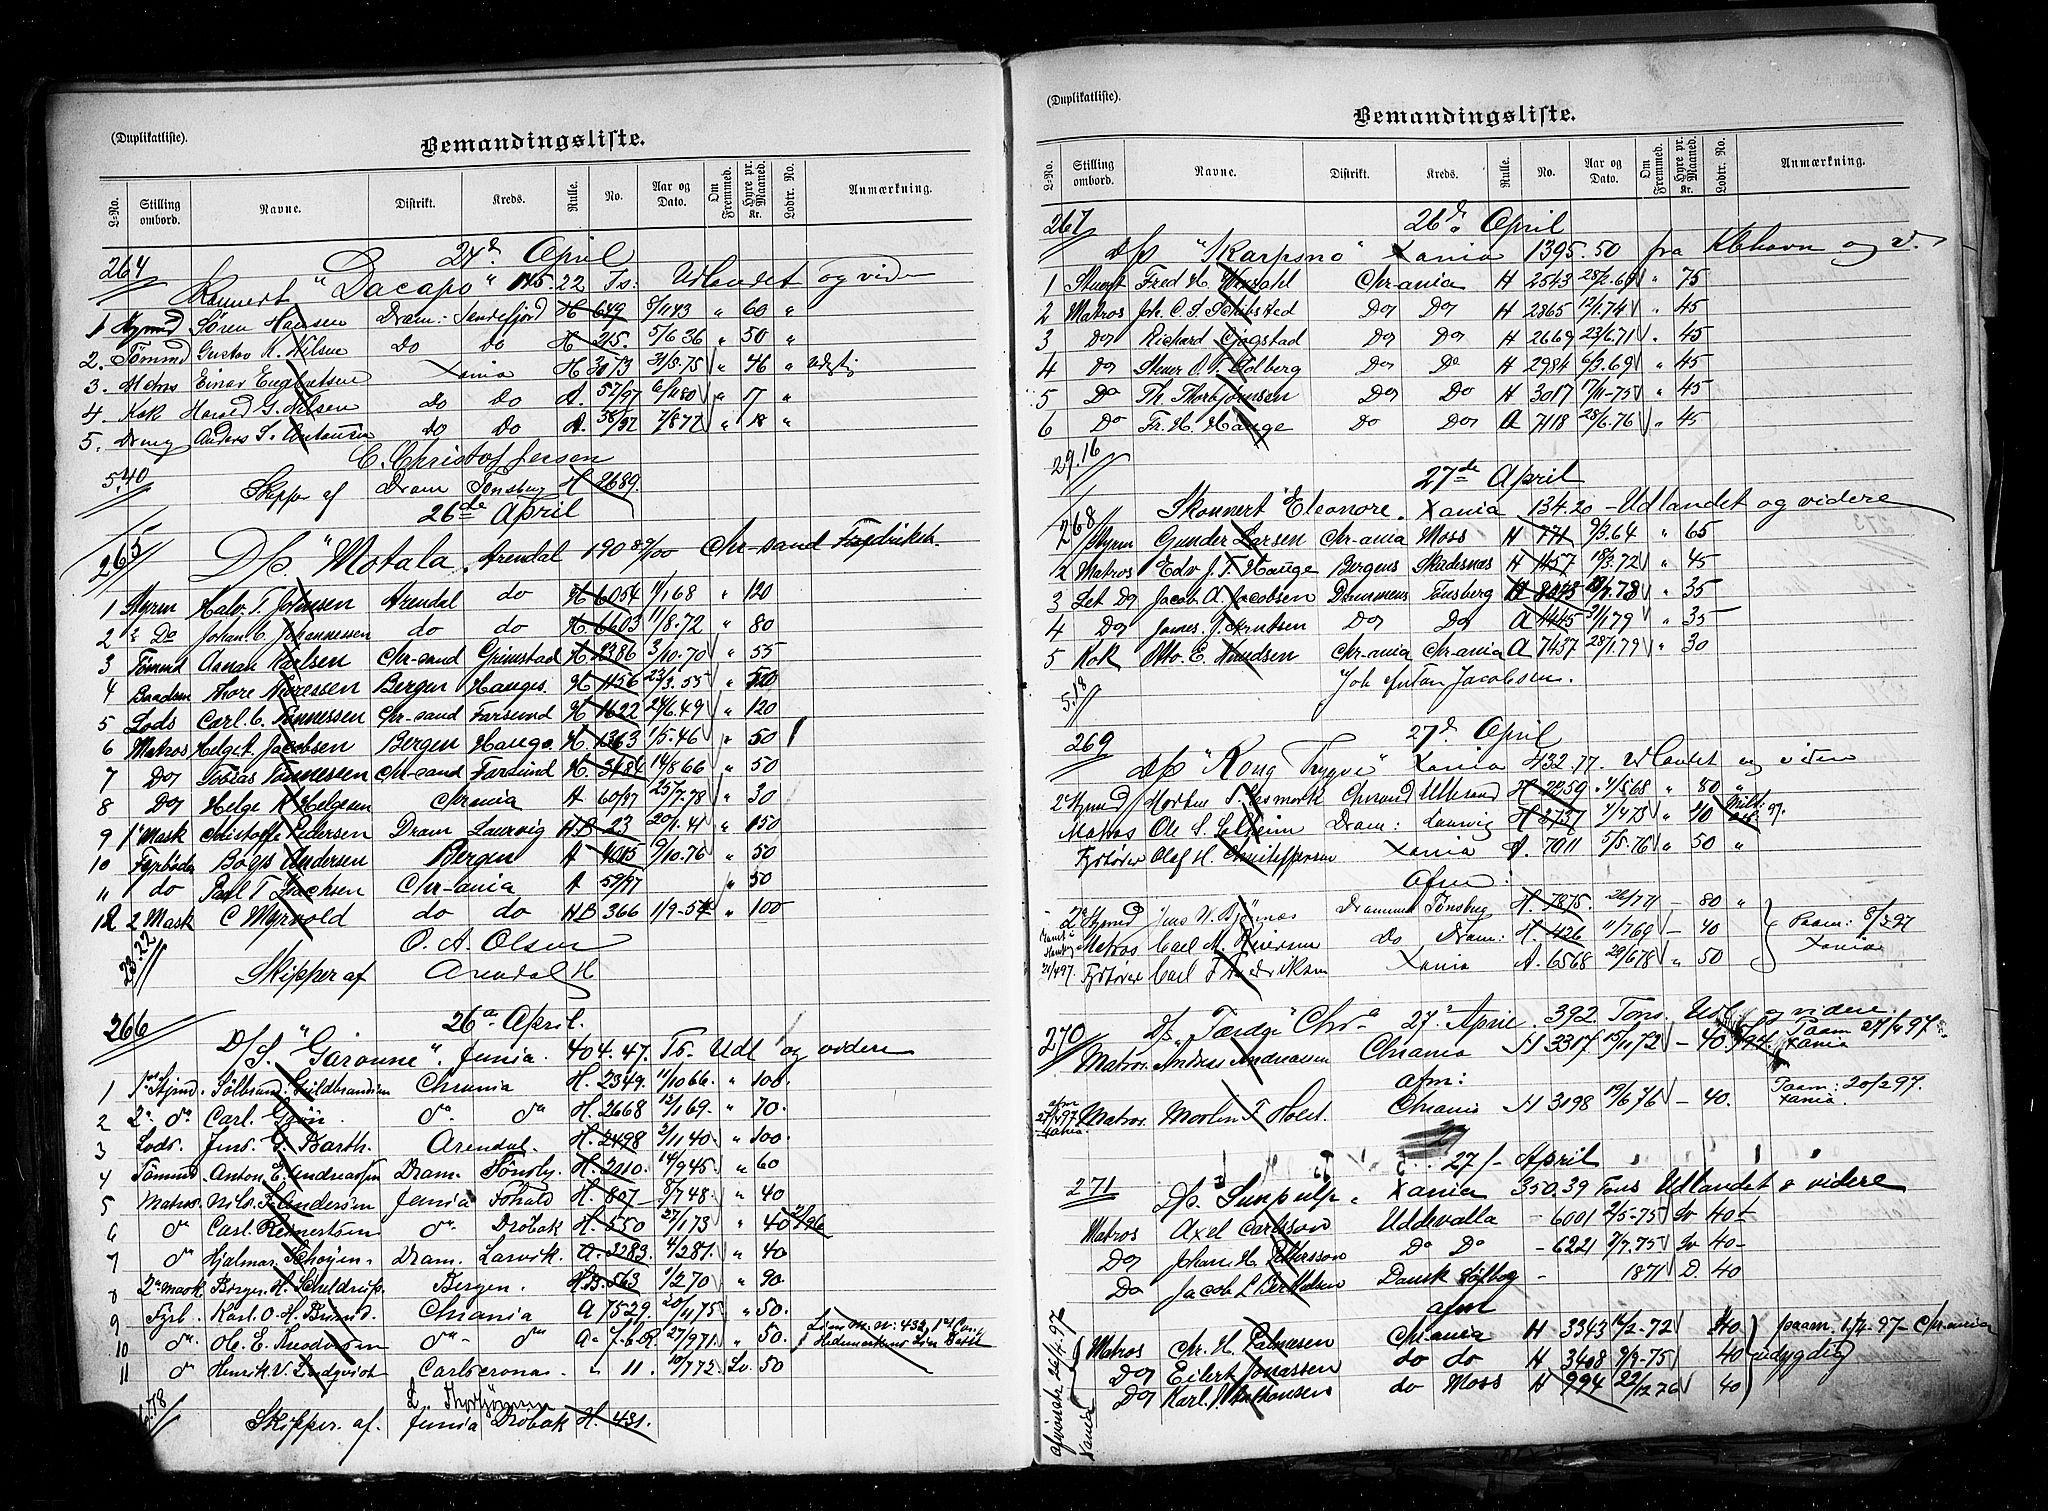 (Duplikatliste).
Bemandingsliste.
L-No. Stilling ombord. Navne. Distrikt. Kreds. Rulle. No. Aar og Dato. Om Fremmed. Hyre pr. Maaned. Kr. Lodtr. No. Anmærkning.
24d April
264 Konnert "Dacapo" 145.22 Ts: Udlandet og vider
1 Styrmd Søren Hansen Dram: Sandefjord H 649 8/11 43 " 60 "
2. Tömmd Gustav K. Nilsen Do Do H 215. 5/6 36 " 50 "
3. Matros Einar Engbretsen Xania H 3073 31/8.75 " 46 "
4 Kok Harald G. Nilsen Do Do A. 52/97 6/11 80 " 17 "
5. Dreng Anders S. Antonsen Do Do A. 38/97 7/8 77 " 18 "
C. Christoffersen
5.40 Skipper af Dram Tønsberg H 2689.
26de April
265 D/s. "Motala" Arendal 190 89/00 Chr-sand Fredriksh.
1 Styrm Halv. T. Johnsen Arendal do H 6054 11/1 68 " 120
2 2 Do Johan C. Johannessen do do H. 6603 11/8.72 " 80
3 Tömmd Aanan Karlsen Chr-sand Grimstad H. 2386 3/10.70 " 55
4 Baadsm Thore Thoressen Bergen Hauges. H 1156 23/3.55 "
5 Lods Carl C. Tønnessen Chr-sand Farsund H 1622 24/6.49 " 120
6 Matros Helge T. Jacobsen Bergen Hauga. H. 1363 1/5.46 " 50
7 Do Tobias Tønnessen Chr-sand Farsund H. 3481 14/8 66 " 50
8 Do Helge K Helgesen Chrania A 60/97 25/7.78 " 30
9 1' Mask Christoffe Pedersen Dram Laurvig HB 23 20/1.41 " 150
10 Fyrböder Boys Andersen Bergen A 4045 9/10.76 " 50
11 do Paul T Isachsen Chr-ania A 59/97 " 50
12 2 Mask C Myrvold do do HB 366 1/9-54 " 100
O. A. Olsen
23.22 Skipper af Arendal H
266 26de April.
D/S. "Garonne". Xania. 404.47. Ts. Udl og videre
1 1ste Styrmd. Chrania H. 2349. 11/10 66. " 100.
2 2. do Carl. do do H. 2668 12/1 69. " 70.
3 Lods. Jens. G. Barth. Arendal. H. 2498 2/11 40. " 100.
4 Tömmd. Anton E. Andreassen Dram. Tönsby. H. 2110. 14/9 45. " 60
5 Matros. Nils. F. Andersön H. 807 8/7 48. " 40
6 do Carl. Reinertsen do Dröbak H. 550 27/1 73 " 40
7 do Hjalmar Schøyen. Dram. Larvik. A. 3283. 4/2 81. " 40
8 2' mask Börger. H. Schieldrup. Bergen. HB. 563 1/2 70 " 90
9 Fyrb. Karl. O. H. Chrania A 7529. 20/11 75 " 50.
10 do. Ole. E. Theodorsen do do 27/9 71. " 50.
11 do Henrik. V. Lindqvist Carlscrona. " 11. 10/7 72. Sv. 50
L. Thorbjörnsen
Skipper. af. Dröbak H. 431.
(Duplikatliste).
Bemandingsliste.
L-No. Stilling ombord. Navne. Distrikt. Kreds. Rulle. No. Aar og Dato. Om Fremmed. Hyre pr. Maaned. Kr. Lodtr. No. Anmærkning.
267 26d April
D/s "Skarpsno" Xania 1395.50 fra Kbhavn og v.
1 Stuert Fred H. Chr-ania H 2543 28/2.69 " 75
2 Matros Joh. C. S. Schibsted Do Do H 2865 12/1.74 " 45
3 Do Richard Gjøgstad Do Do H 2669 23/6.71 " 45
4 Do Solberg Do Do H 2984 6/3.69 " 45
5 Do Th. Thorbjörnsen Do Do H 3017 17/11-75 " 45
6 Do Fr. H. Hauge Do Do A 7118 28/6.76 " 45
29.16
27de April
268 Skonnert Eleonore. Xania 134.20 - Udlandet og videre
1 Styrm Gunder Larsen Chr-ania Moss H 771 9/3.64 " 65
2 Matros Edv. J. T. Hauge Bergens Skudesnæs H 1157 18/3.72 " 45
3 Let Do Jacob A. Jacobsen Drammens Tønsberg H 35
4 Do James. J. Arntsen Do Do A 1445 31/1.79 " 35
5 Kok Otto. E. Knudsen Chr-ania Chr-ania A 7437 28/1.79 " 30
Joh Anton Jacobsen.
5.18
269 27d April
D/s "Kong Trygve" Xania 432.77. Udlandet og videre
2' Styrmd Morten H 2259. 4/5 68 " 80 "
Matros Ole S. Solheim Dram: Laurvig H 2737 4/4 75 " 40
Fyrbøder Olaf H. Christoffersen Xania A. 7011 5/5.76 " 50 "
Afm:
2' Styrmd Jens N. Bjönnes Drammen Tönsberg H. 7875. 26/7 71 - 80 "
Matros Carl M. Iversen Do Dram: H. 426 11/7 69 - 40 Paam: 8/2 97
Fyrbøder Carl Fredriksen Xania A. 6568 29/6 78 " 50 Xania
270 D/s "Tærdge" Chra 27' April. 392. Tons. Udl og videre.
Matros. Andreas Andreassen Chrania H 3317 15/11 72 - 40 Paam 27/4 97. Xania
afm:
Matros. Morten F Holst. Chrania H 3198 19/6 76 - 40. Paam: 20/2 97. Xania.
27/- April
271 D/s. Sunpulp. Xania 350.39 Tons Udlandet & videre
Matros Axel Carlsson Uddevalla - 6001 2/5-75 Sv 40-
Do Johan H. Pettersson Do Do - 6221 7/7.75 Sv 40-
Do Jacob L Bertholsen Dansk - 1871 D. 40
afm
Matros Chr. H. Palmesen Chrania H 3343 14/2-72 40 paam: 1/2-97 Chrania
Do Eilert Jonassen do do H 3408 9/9-75 40 udygdig
Do Karl. Mathonsens do Moss H 994 22/12 76 40
afmönstr. 26/4 97 Xania